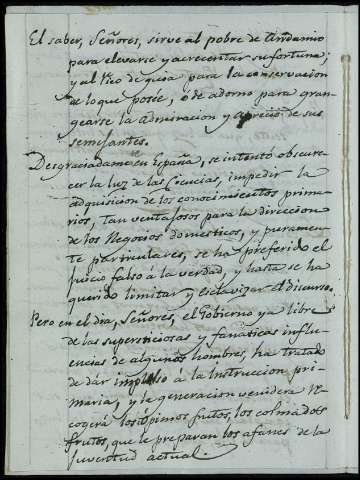 El saber, Señores, sirve al pobre de Andamio
para elevarse y acrecentar su fortuna;
y al rico de guia para la conservacion
de lo que posée, ó de adorno para gran-
gearse la admiracion y aprecio de sus
semejantes.
Desgraciadamte. en España, se intentó obscure-
cer la luz de las Ciencias, impedir la
adquisicion de los conocimientos prima-
rios, tan ventajosos para la direccion
de los Negocios domesticos, y puramen-
te particulares, se ha preferido el
juicio falso á la verdad, y hasta se ha
querido limitar y esclavizar el discurso.
Pero en el dia, Señores, el Gobierno ya libre
de las supersticiosas y fanáticas influ-
encias de algunos hombres, ha tratado
de dar impulso á la Instruccion pri-
maria, y la generacion venidera re-
cogerá los opimos frutos, los colmados
frutos, que le preparan los afanes de la
juventud actual.